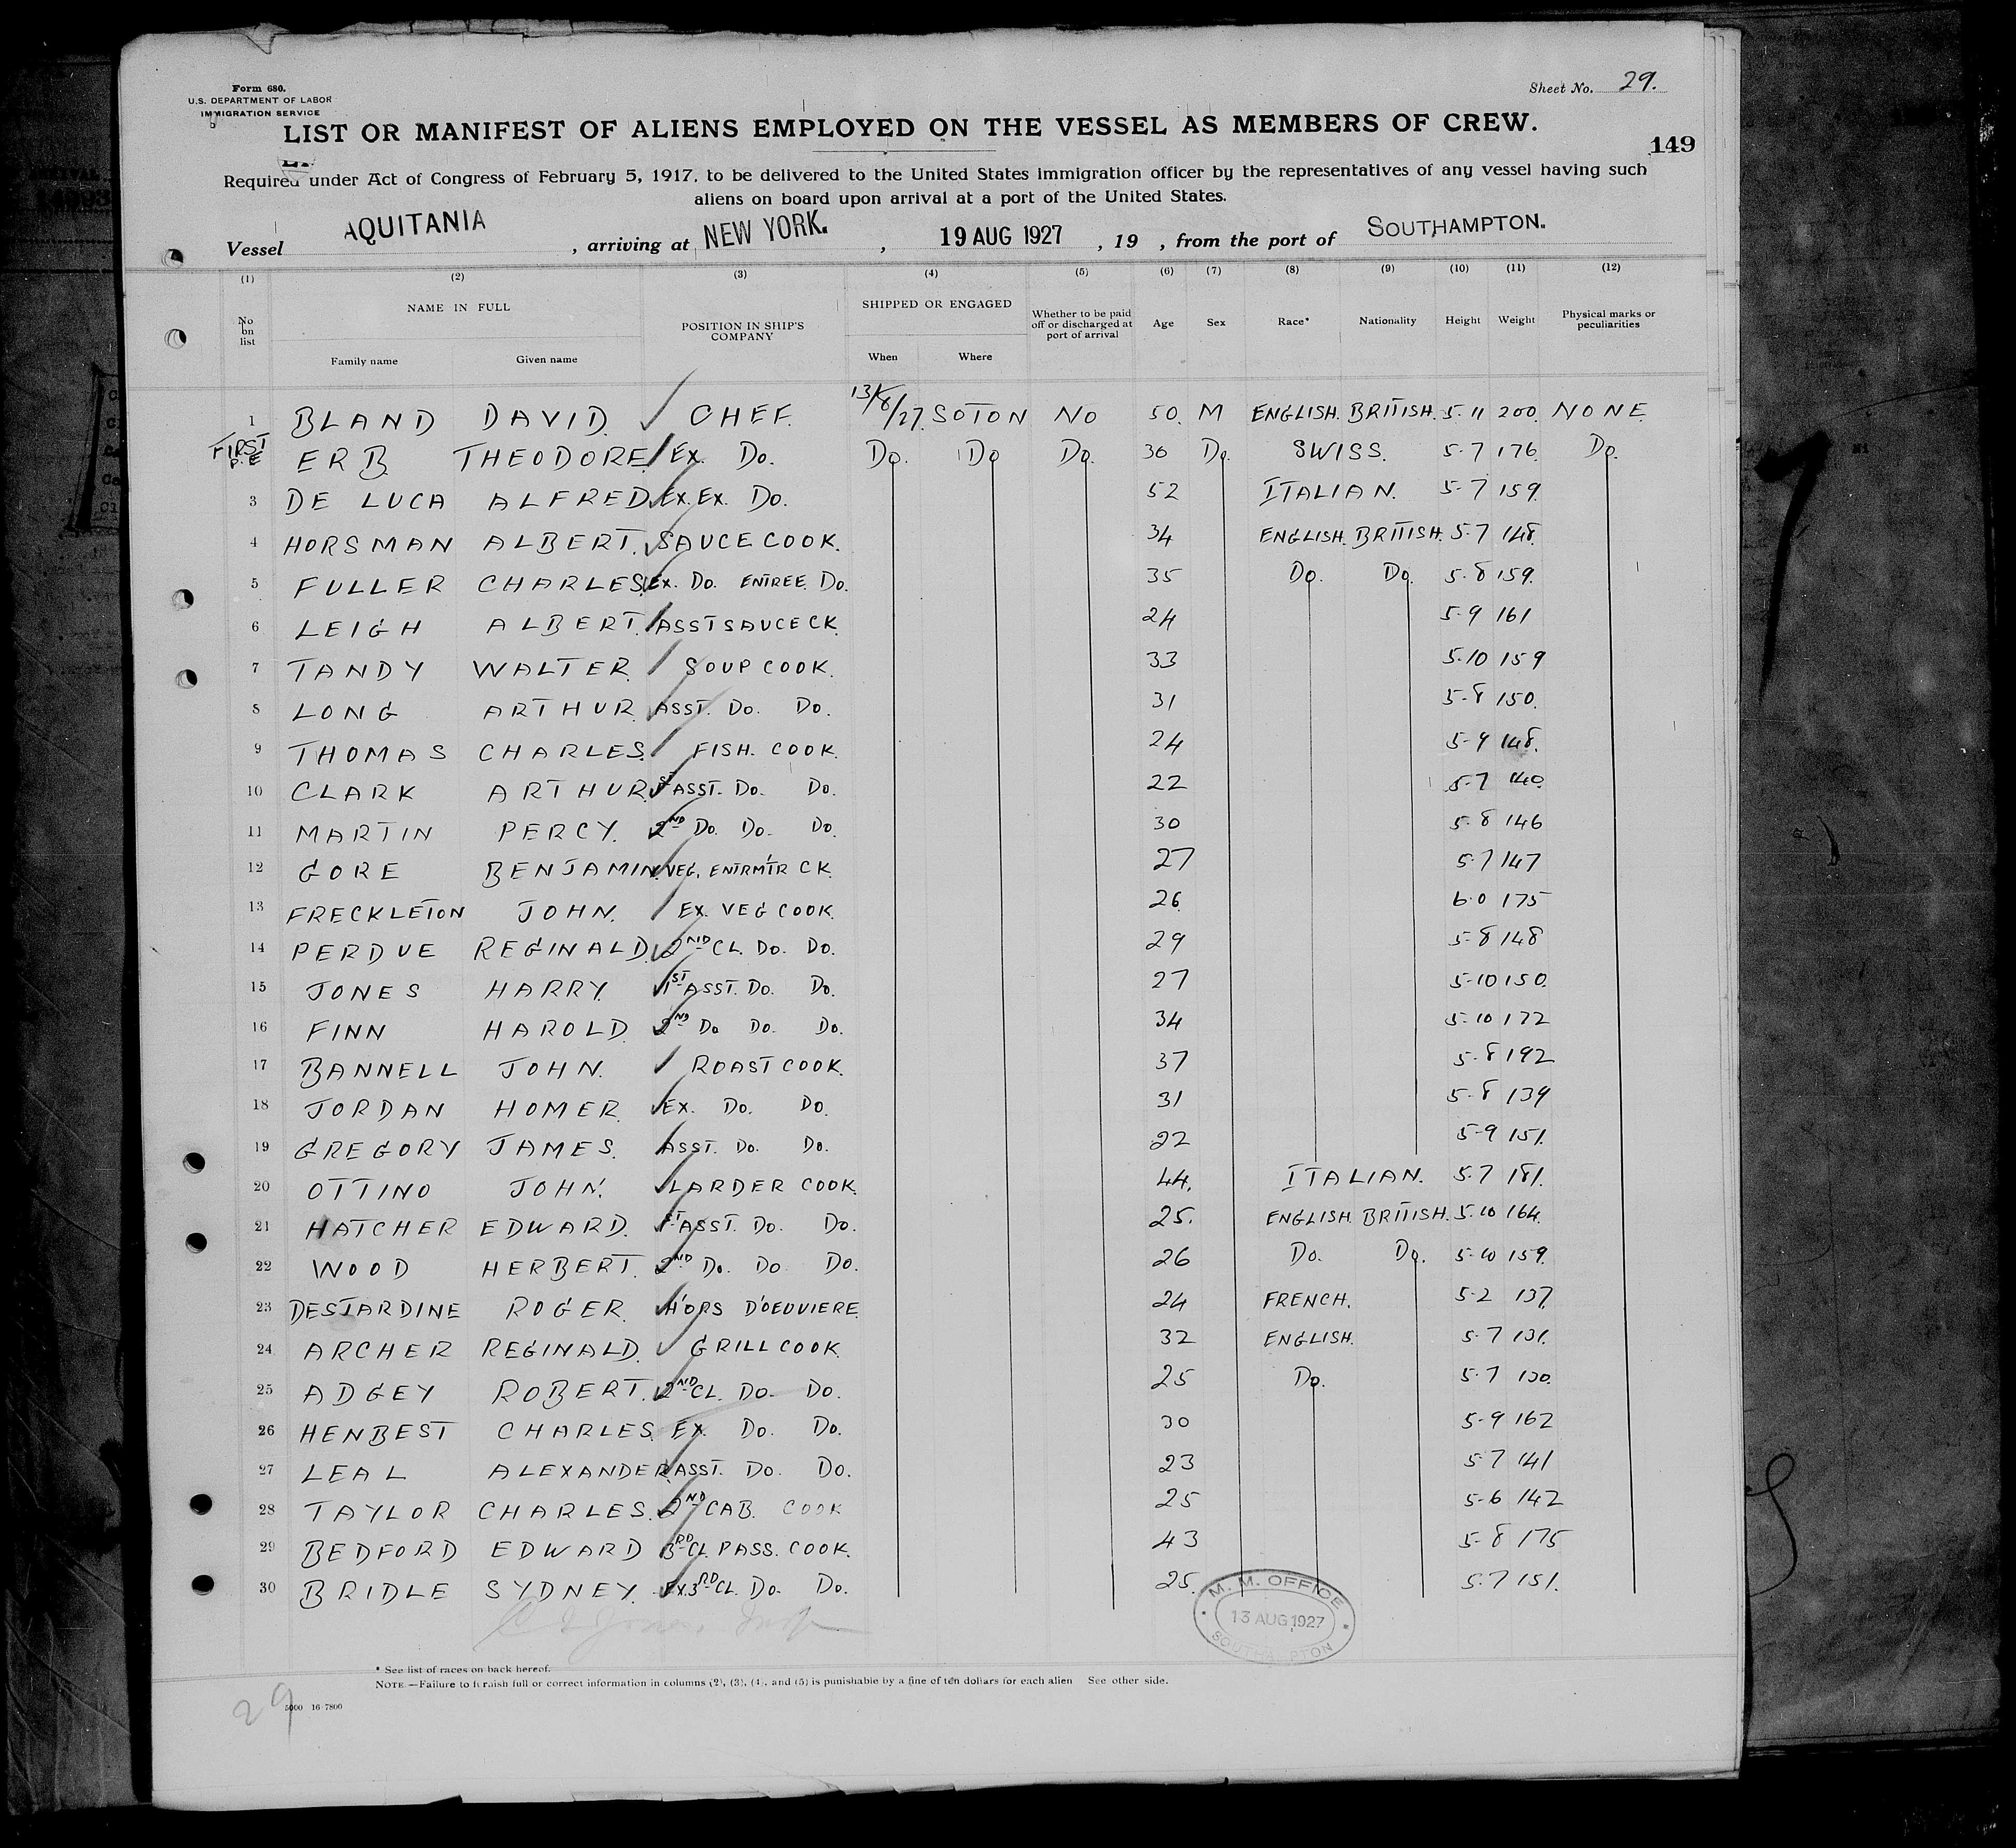 Form 680.
U.S. DEPARTMENT OF LABOR
IMMIGRATION SERVICE
Sheet No. 29.
LIST OR MANIFEST OF ALIENS EMPLOYED ON THE VESSEL AS MEMBERS OF CREW.
149
Required under Act of Congress of February 5, 1917, to be delivered to the United States immigration officer by the representatives of any vessel having such
aliens on board upon arrival at a port of the United States.
Vessel AQUITANIA, arriving at NEW YORK., 19 AUG 1927, 19 , from the port of SOUTHAMPTON.
(1) (2) (3) (4) (5) (6) (7) (8) (9) (10) (11) (12)
No on list NAME IN FULL Family name Given name POSITION IN SHIP'S COMPANY SHIPPED OR ENGAGED When Where Whether to be paid off or discharged at port of arrival Age Sex Race* Nationality Height Weight Physical marks or peculiarities
1 BLAND DAVID. CHEF. 13/8/27 SOTON NO 50. M ENGLISH. BRITISH. 5.11 200. NONE.
FIRST P.E ERB THEODORE Ex. Do. Do. Do Do. 36 Do. SWISS. 5-7 176. Do.
3 DE LUCA ALFRED Ex. Ex. Do. 52 ITALIAN. 5-7 159.
4 HORSMAN ALBERT. SAUCE COOK. 34 ENGLISH. BRITISH. 5-7 148.
5 FULLER CHARLES. Ex. Do. ENTREE. Do. 35 Do. Do. 5.8 159.
6 LEIGH ALBERT. ASST SAUCE CK. 24 5-9 161
7 TANDY WALTER. SOUP COOK. 33 5.10 159
8 LONG ARTHUR. ASST. Do. Do. 31 5-8 150.
9 THOMAS CHARLES. FISH. COOK. 24 5-9 148.
10 CLARK ARTHUR. 1ST ASST. Do. Do. 22 5-7 140.
11 MARTIN PERCY. 2ND Do. Do. Do. 30 5-8 146
12 GORE BENJAMIN. VEG. ENTRMTR CK. 27 5-7 147
13 FRECKLETON JOHN. EX. VEG COOK. 26. 6.0 175
14 PERDUE REGINALD. 2ND CL. Do. Do. 29 5-8 148
15 JONES HARRY. 1ST ASST. Do. Do. 27 5-10 150.
16 FINN HAROLD. 2ND Do Do. Do. 34 5-10 172
17 BANNELL JOHN. ROAST COOK. 37 5-8 192
18 JORDAN HOMER. EX. Do. Do. 31 5-8 139
19 GREGORY JAMES. ASST. Do. Do. 22 5-9 151.
20 OTTINO JOHN. LARDER COOK. 44. ITALIAN. 5.7 181.
21 HATCHER EDWARD. 1ST ASST. Do. Do. 25. ENGLISH. BRITISH. 5.10 164.
22 WOOD HERBERT. 2ND Do. Do. Do. 26 Do. Do. 5-10 159.
23 DESJARDINE ROGER. H'ORS D'OEUVIERE. 24 FRENCH. 5-2 137.
24 ARCHER REGINALD. GRILL COOK. 32 ENGLISH. 5.7 131.
25 ADGEY ROBERT. 2ND CL. Do. Do. 25 Do. 5.7 130.
26 HENBEST CHARLES. EX. Do. Do. 30 5-9 162
27 LEAL ALEXANDER. ASST. Do. Do. 23 5-7 141
28 TAYLOR CHARLES. 2ND CAB. COOK 25 5-6 142
29 BEDFORD EDWARD 3RD CL. PASS. COOK. 43 5-8 175
30 BRIDLE SYDNEY. EX. 3RD CL. Do. Do. 25. 5.7 151.
M. M. OFFICE
13 AUG 1927
SOUTHAMPTON
* See list of races on back hereof.
NOTE.—Failure to furnish full or correct information in columns (2), (3), (4), and (5) is punishable by a fine of ten dollars for each alien See other side.
29
5000 16-7800